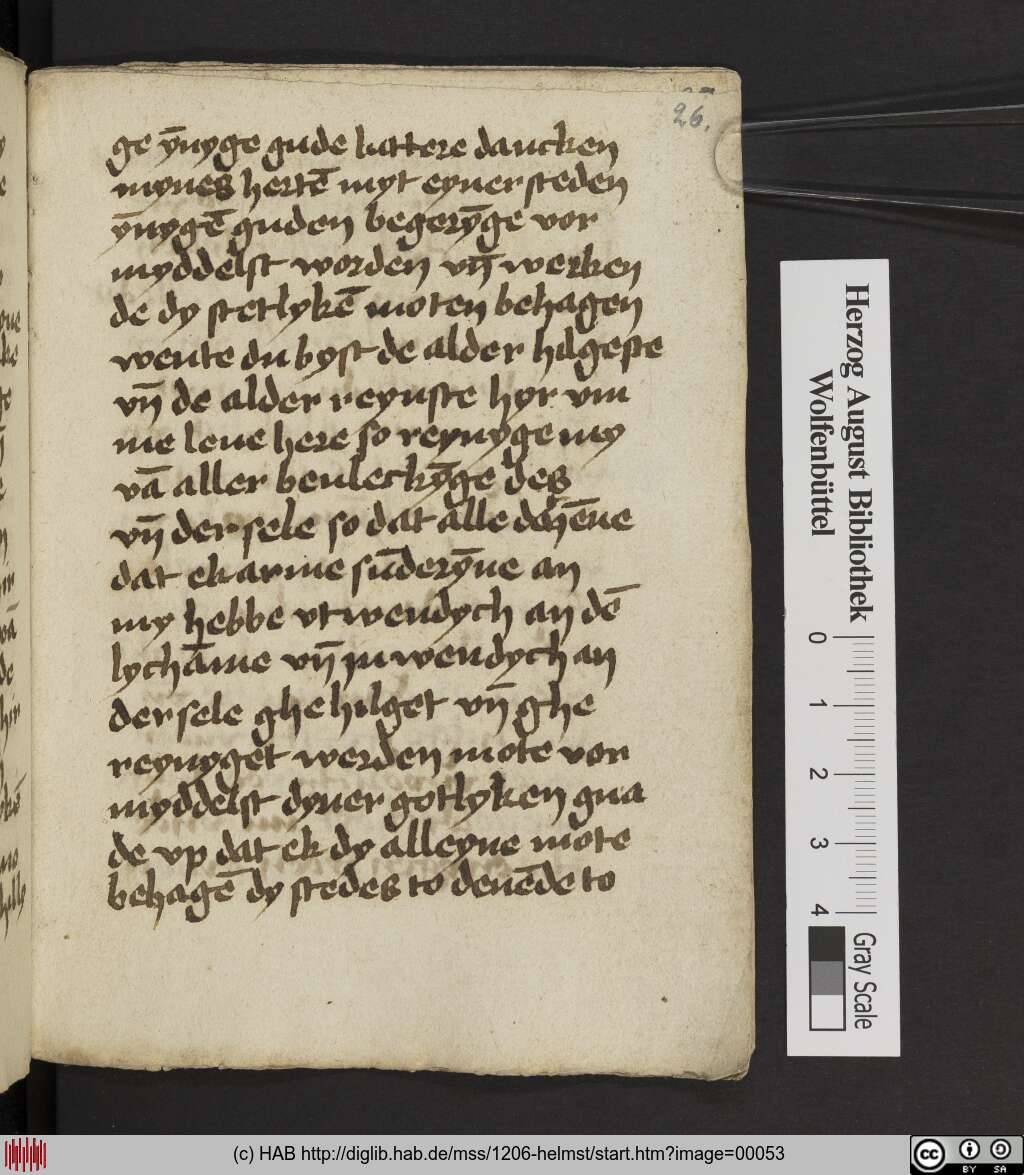 26.
ge ȳnyge gude luttere dancken
mynes hertē myt eyner steden
ȳnygē guden begerȳge vor
myddelst worden vn̄ werken
de dy stetlykē moten behagen
wente du byst de alder hilgeste
vn̄ de alder reynste hyr vm
me leue here so reynyge my
vā aller beuleckȳge des
vn̄ der sele so dat alle
dat ek arme sūderȳne an
my hebbe vtwendych an dē
lychāme vn̄ inwendych an
der sele ghehilget vn̄ ghe
reynyget werden mote vor
myddelst dyner gotlyken gna
de vp dat ek dy alleyne mote
behagē dy stedes to denēde to
Herzog August Bibliothek
Wolfenbüttel
0 1 2 3 4
Gray Scale
(c) HAB http://diglib.hab.de/mss/1206-helmst/start.htm?image=00053
cc BY SA